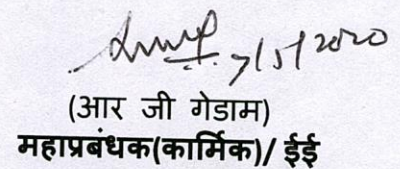 7/5/2020
(आर जी गेडाम)
महाप्रबंधक(कार्मिक)/ ईई